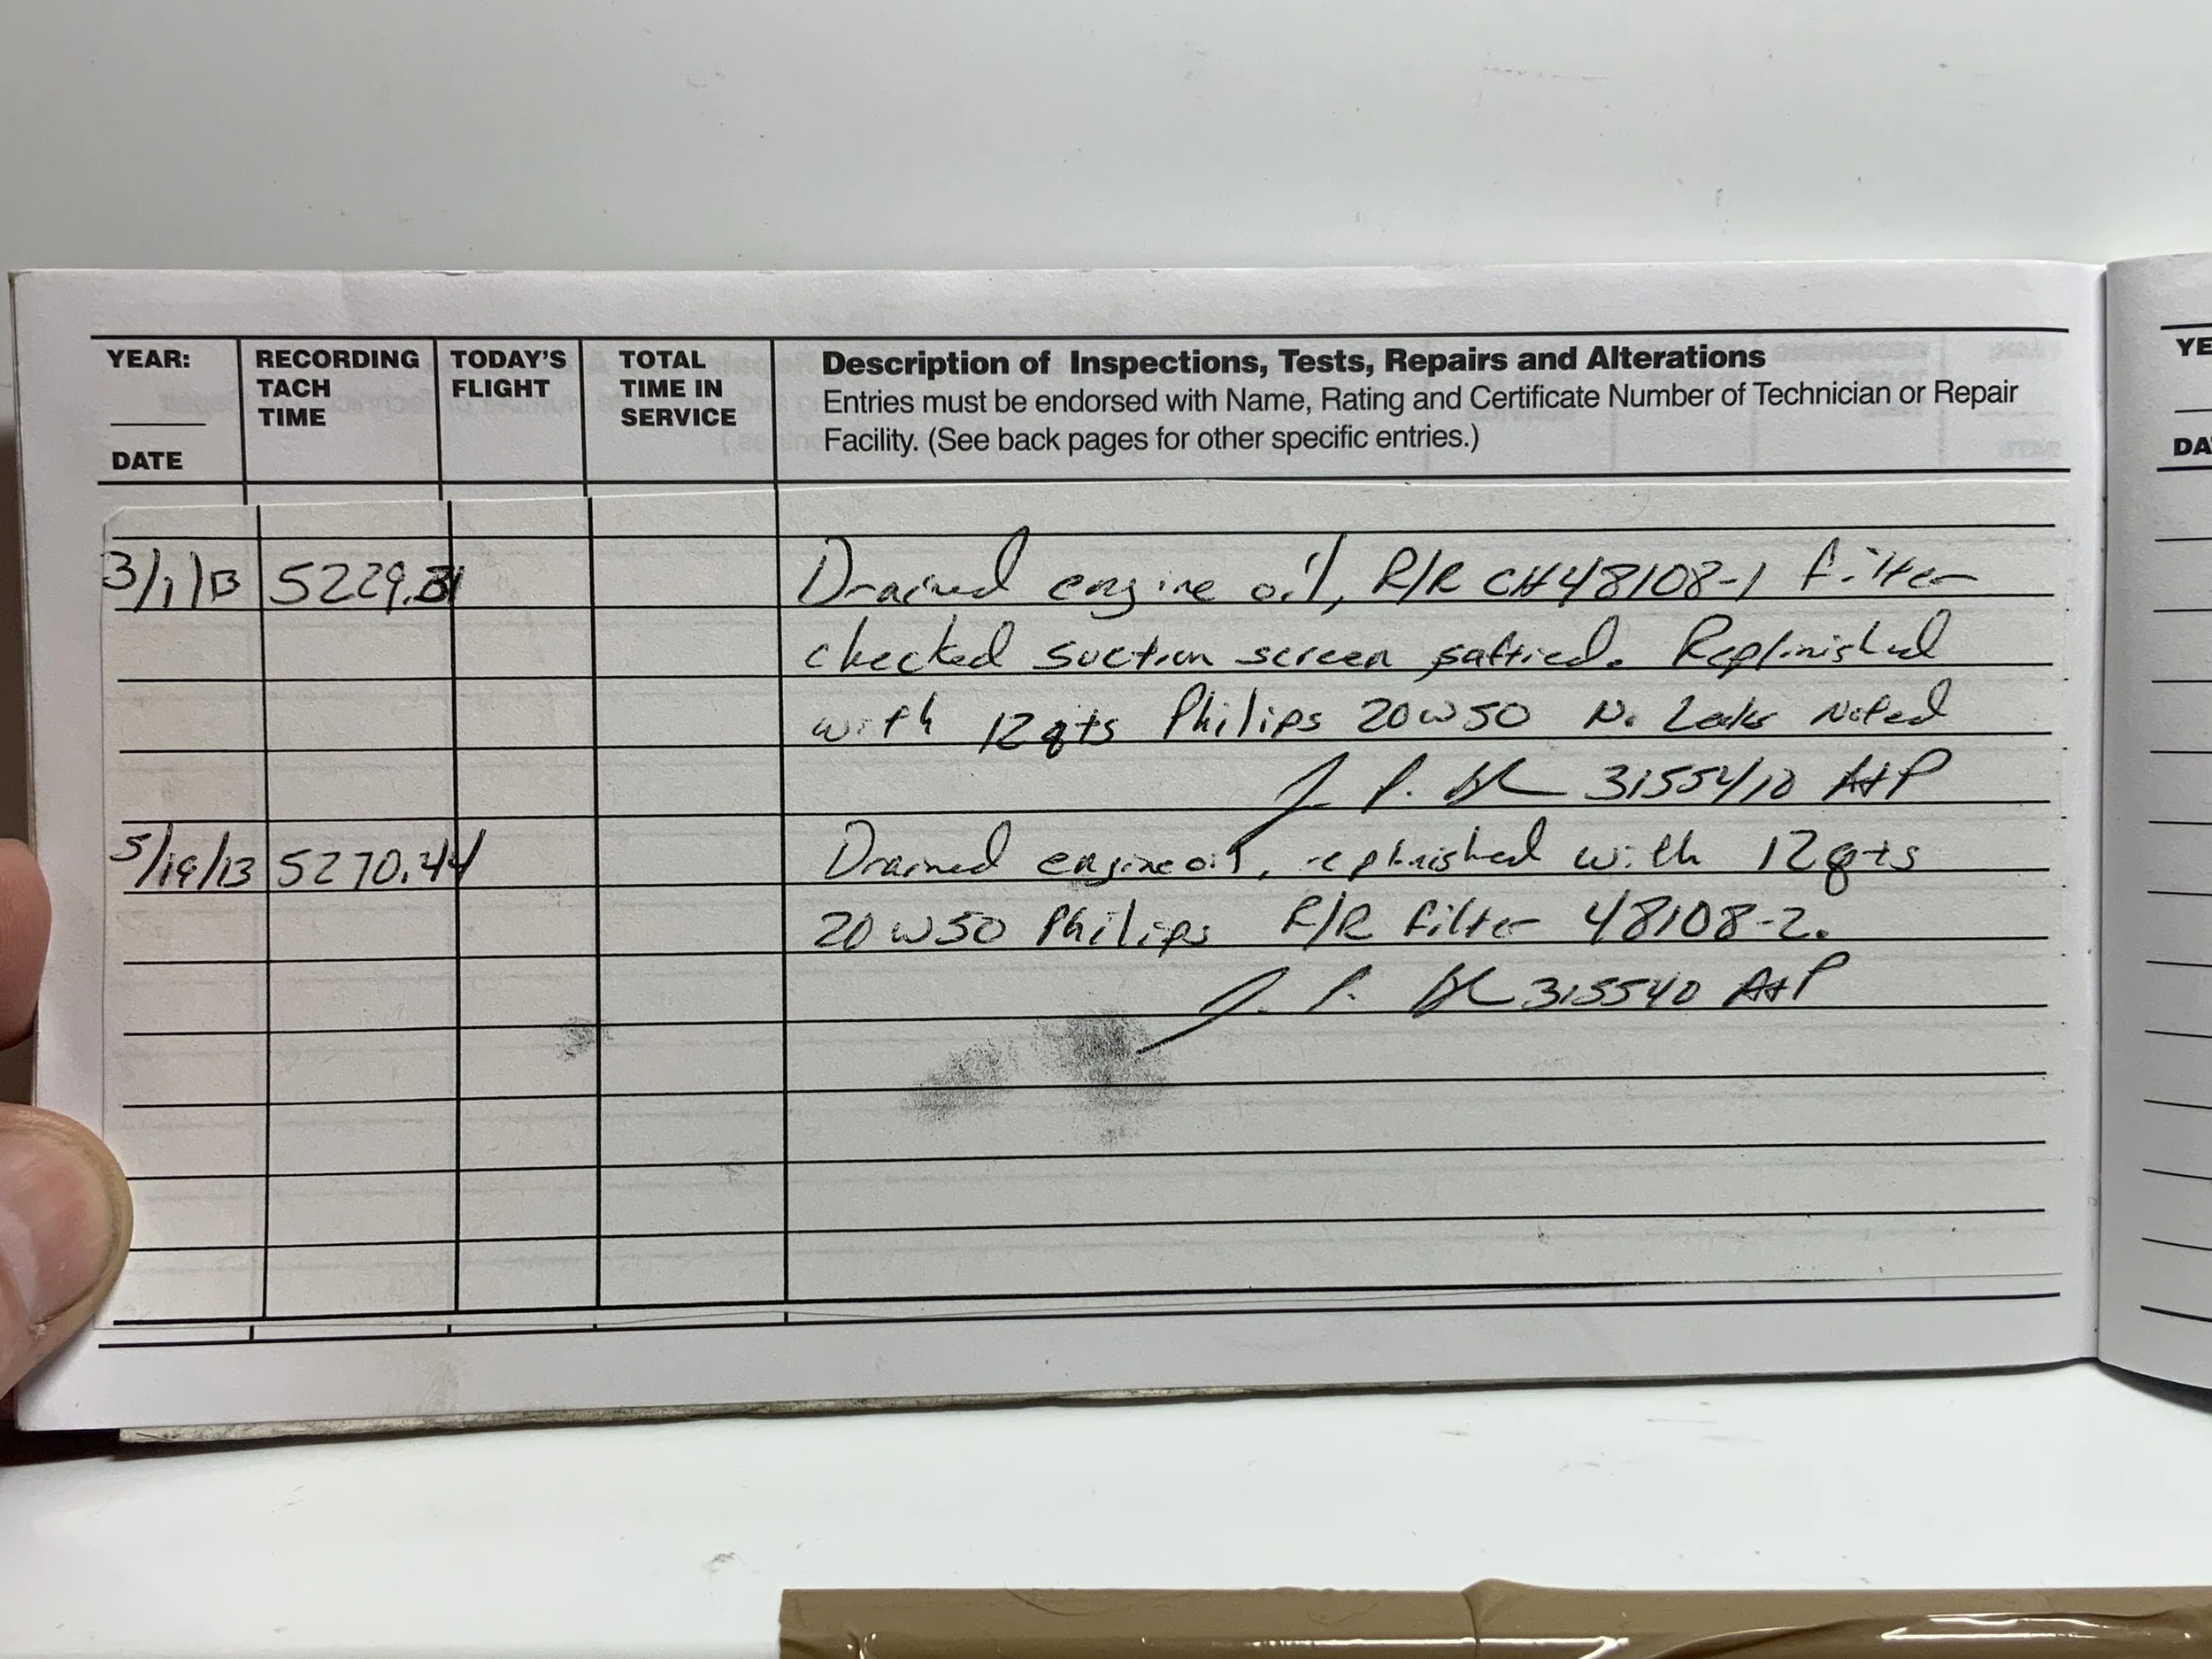 YEAR: RECORDING TACH TIME TODAY'S FLIGHT TOTAL TIME IN SERVICE
DATE
Description of Inspections, Tests, Repairs and Alterations
Entries must be endorsed with Name, Rating and Certificate Number of Technician or Repair
Facility. (See back pages for other specific entries.)
3/1/13 5229.31 Drained engine oil, R/R CH48108-1 filter
checked suction screen saftied. Replinished
with 12qts Philips 20W50 No Leaks Noted
J. P. A+P
5/19/13 5270.44 Drained engine oil, replinished with 12qts
20W50 Philips R/R filter 48108-2.
J. P. A+P
YE
DA